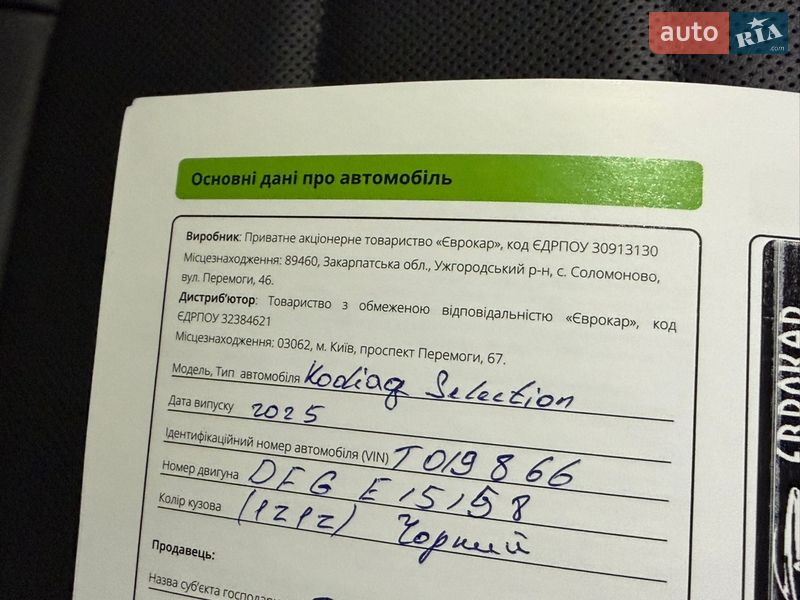 auto RIA .com
Основні дані про автомобіль
Виробник: Приватне акціонерне товариство «Єврокар», код ЄДРПОУ 30913130
Місцезнаходження: 89460, Закарпатська обл., Ужгородський р-н, с. Соломоново,
вул. Перемоги, 46.
Дистриб'ютор: Товариство з обмеженою відповідальністю «Єврокар», код
ЄДРПОУ 32384621
Місцезнаходження: 03062, м. Київ, проспект Перемоги, 67.
Модель, Тип автомобіля Kodiaq Selection
Дата випуску 2025
Ідентифікаційний номер автомобіля (VIN) T019866
Номер двигуна DFG E15158
Колір кузова (1Z1Z) Чорний
Продавець:
Назва суб'єкта господар
ЄВРОКАР